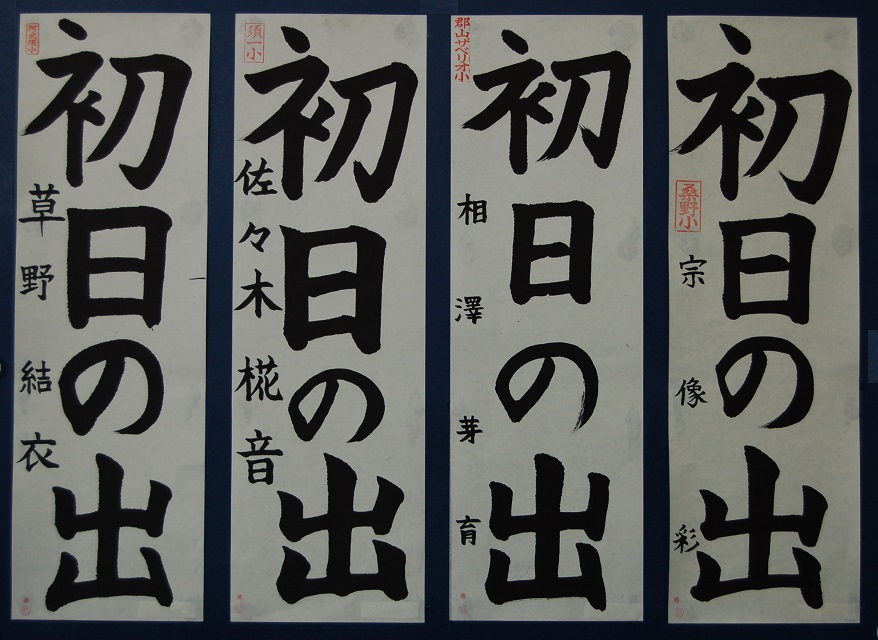 初日の出
草野結衣
須一小
初日の出
佐々木椛音
郡山ザベリオ小
初日の出
相澤芽育
初日の出
桑野小
宗像彩